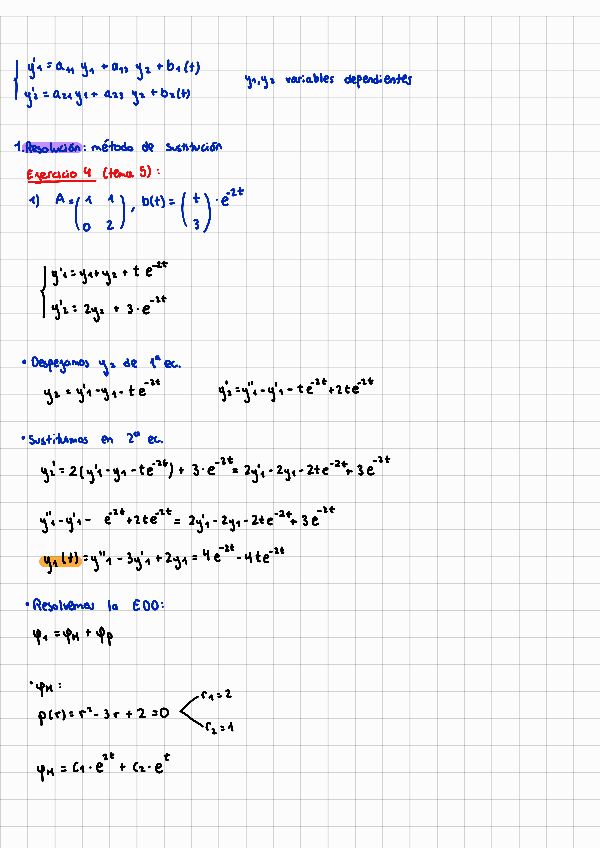 { y'₁ = a₁₁ y₁ + a₁₂ y₂ + b₁(t)
y'₂ = a₂₁ y₁ + a₂₂ y₂ + b₂(t)
y₁, y₂ variables dependientes
1. Resolución: método de sustitución
Ejercicio 4 (tema 5):
1) A = (1 1 ; 0 2), b(t) = (t ; 3) · e^-2t
{ y'₁ = y₁ + y₂ + t e^-2t
y'₂ = 2y₂ + 3 · e^-2t
• Despejamos y₂ de 1ª ec.
y₂ = y'₁ - y₁ - t e^-2t    y'₂ = y''₁ - y'₁ - t e^-2t + 2t e^-2t
• Sustituimos en 2ª ec.
y₂' = 2(y'₁ - y₁ - te^-2t) + 3 · e^-2t = 2y'₁ - 2y₁ - 2te^-2t + 3e^-2t
y''₁ - y'₁ - e^-2t + 2te^-2t = 2y'₁ - 2y₁ - 2te^-2t + 3e^-2t
y₁(t) = y''₁ - 3y'₁ + 2y₁ = 4e^-2t - 4te^-2t
• Resolvemos la EDO:
φ₁ = φH + φp
• φH:
p(r) = r² - 3r + 2 = 0    r₁ = 2
r₂ = 1
φH = C₁ · e^2t + C₂ · e^t